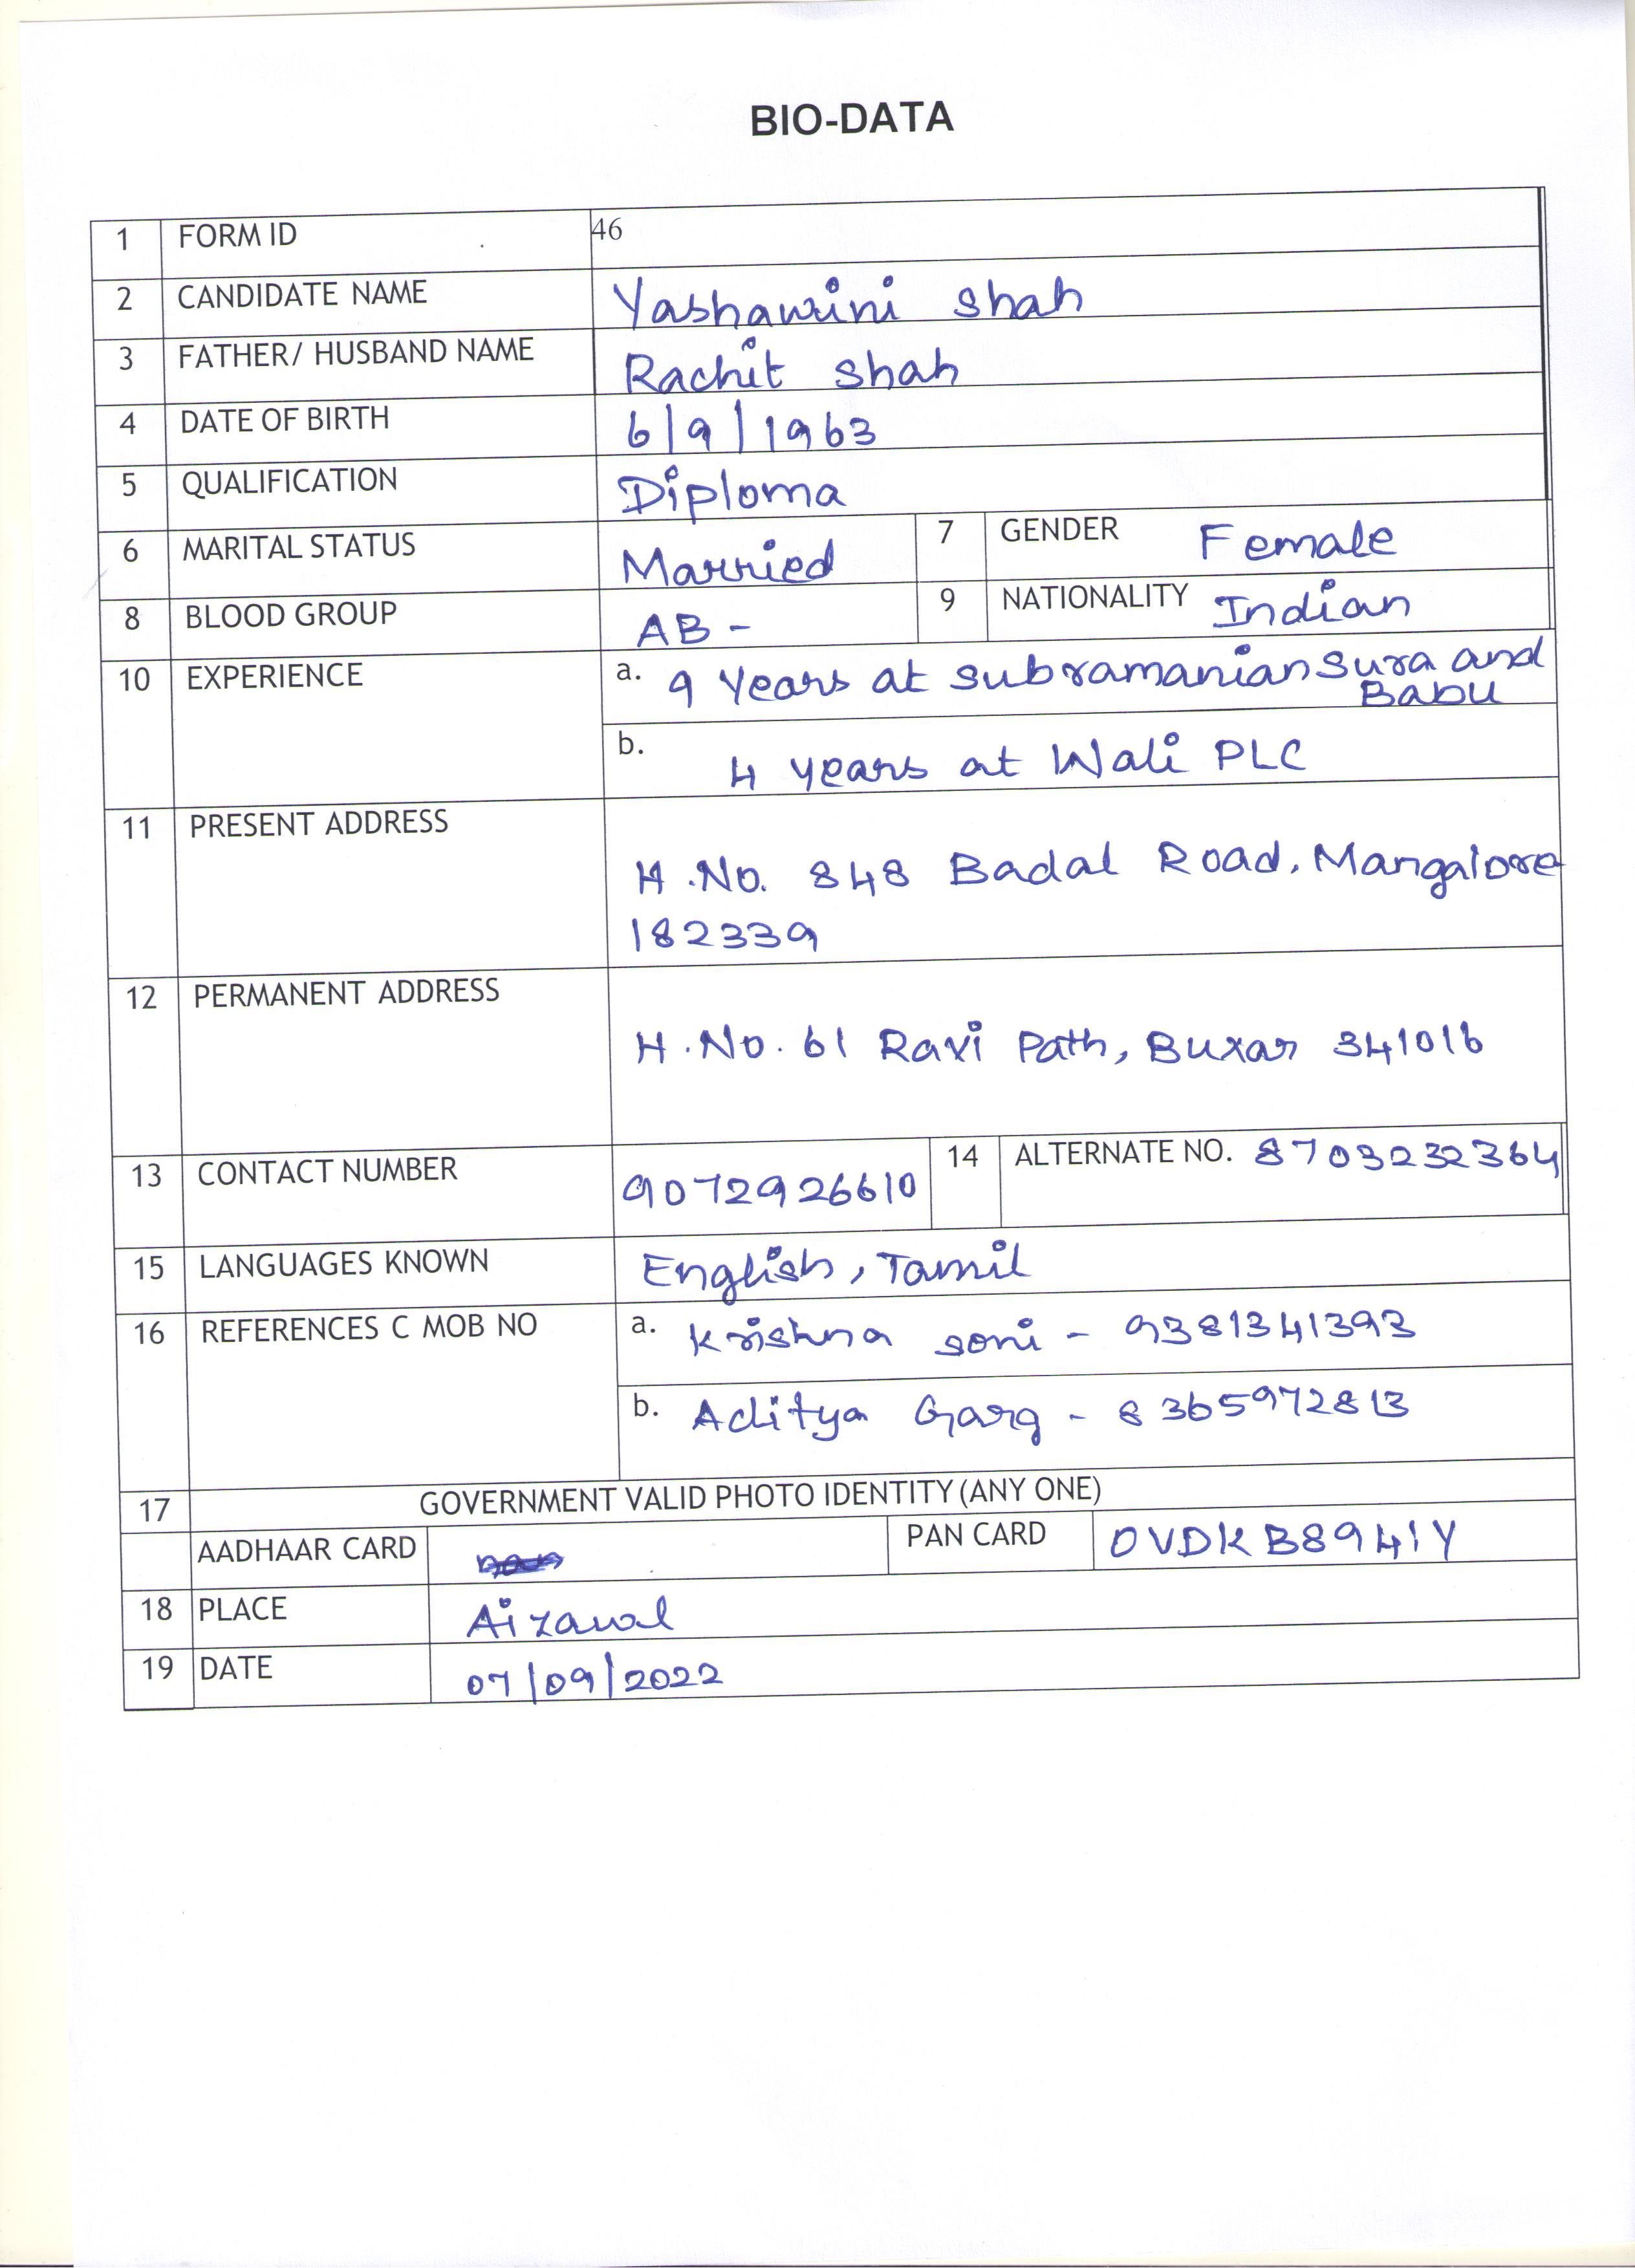 BIO-DATA
1 FORM ID 46
2 CANDIDATE NAME Yashawini Shah
3 FATHER/ HUSBAND NAME Rachit Shah
4 DATE OF BIRTH 6/9/1963
5 QUALIFICATION Diploma
6 MARITAL STATUS Married 7 GENDER Female
8 BLOOD GROUP AB - 9 NATIONALITY Indian
10 EXPERIENCE a. 9 Years at Subramanian Sura and
Babu
b. 4 years at Wali PLC
11 PRESENT ADDRESS
H.No. 848 Badal Road, Mangalore
182339
12 PERMANENT ADDRESS
H.No. 61 Ravi Path, Buxar 341016
13 CONTACT NUMBER 9072926610 14 ALTERNATE NO. 8703232364
15 LANGUAGES KNOWN English, Tamil
16 REFERENCES C MOB NO a. Krishna Soni - 9381341393
b. Aditya Garg - 8365972813
17 GOVERNMENT VALID PHOTO IDENTITY (ANY ONE)
AADHAAR CARD PAN CARD OVDKB8941Y
18 PLACE Aizawl
19 DATE 07/09/2022